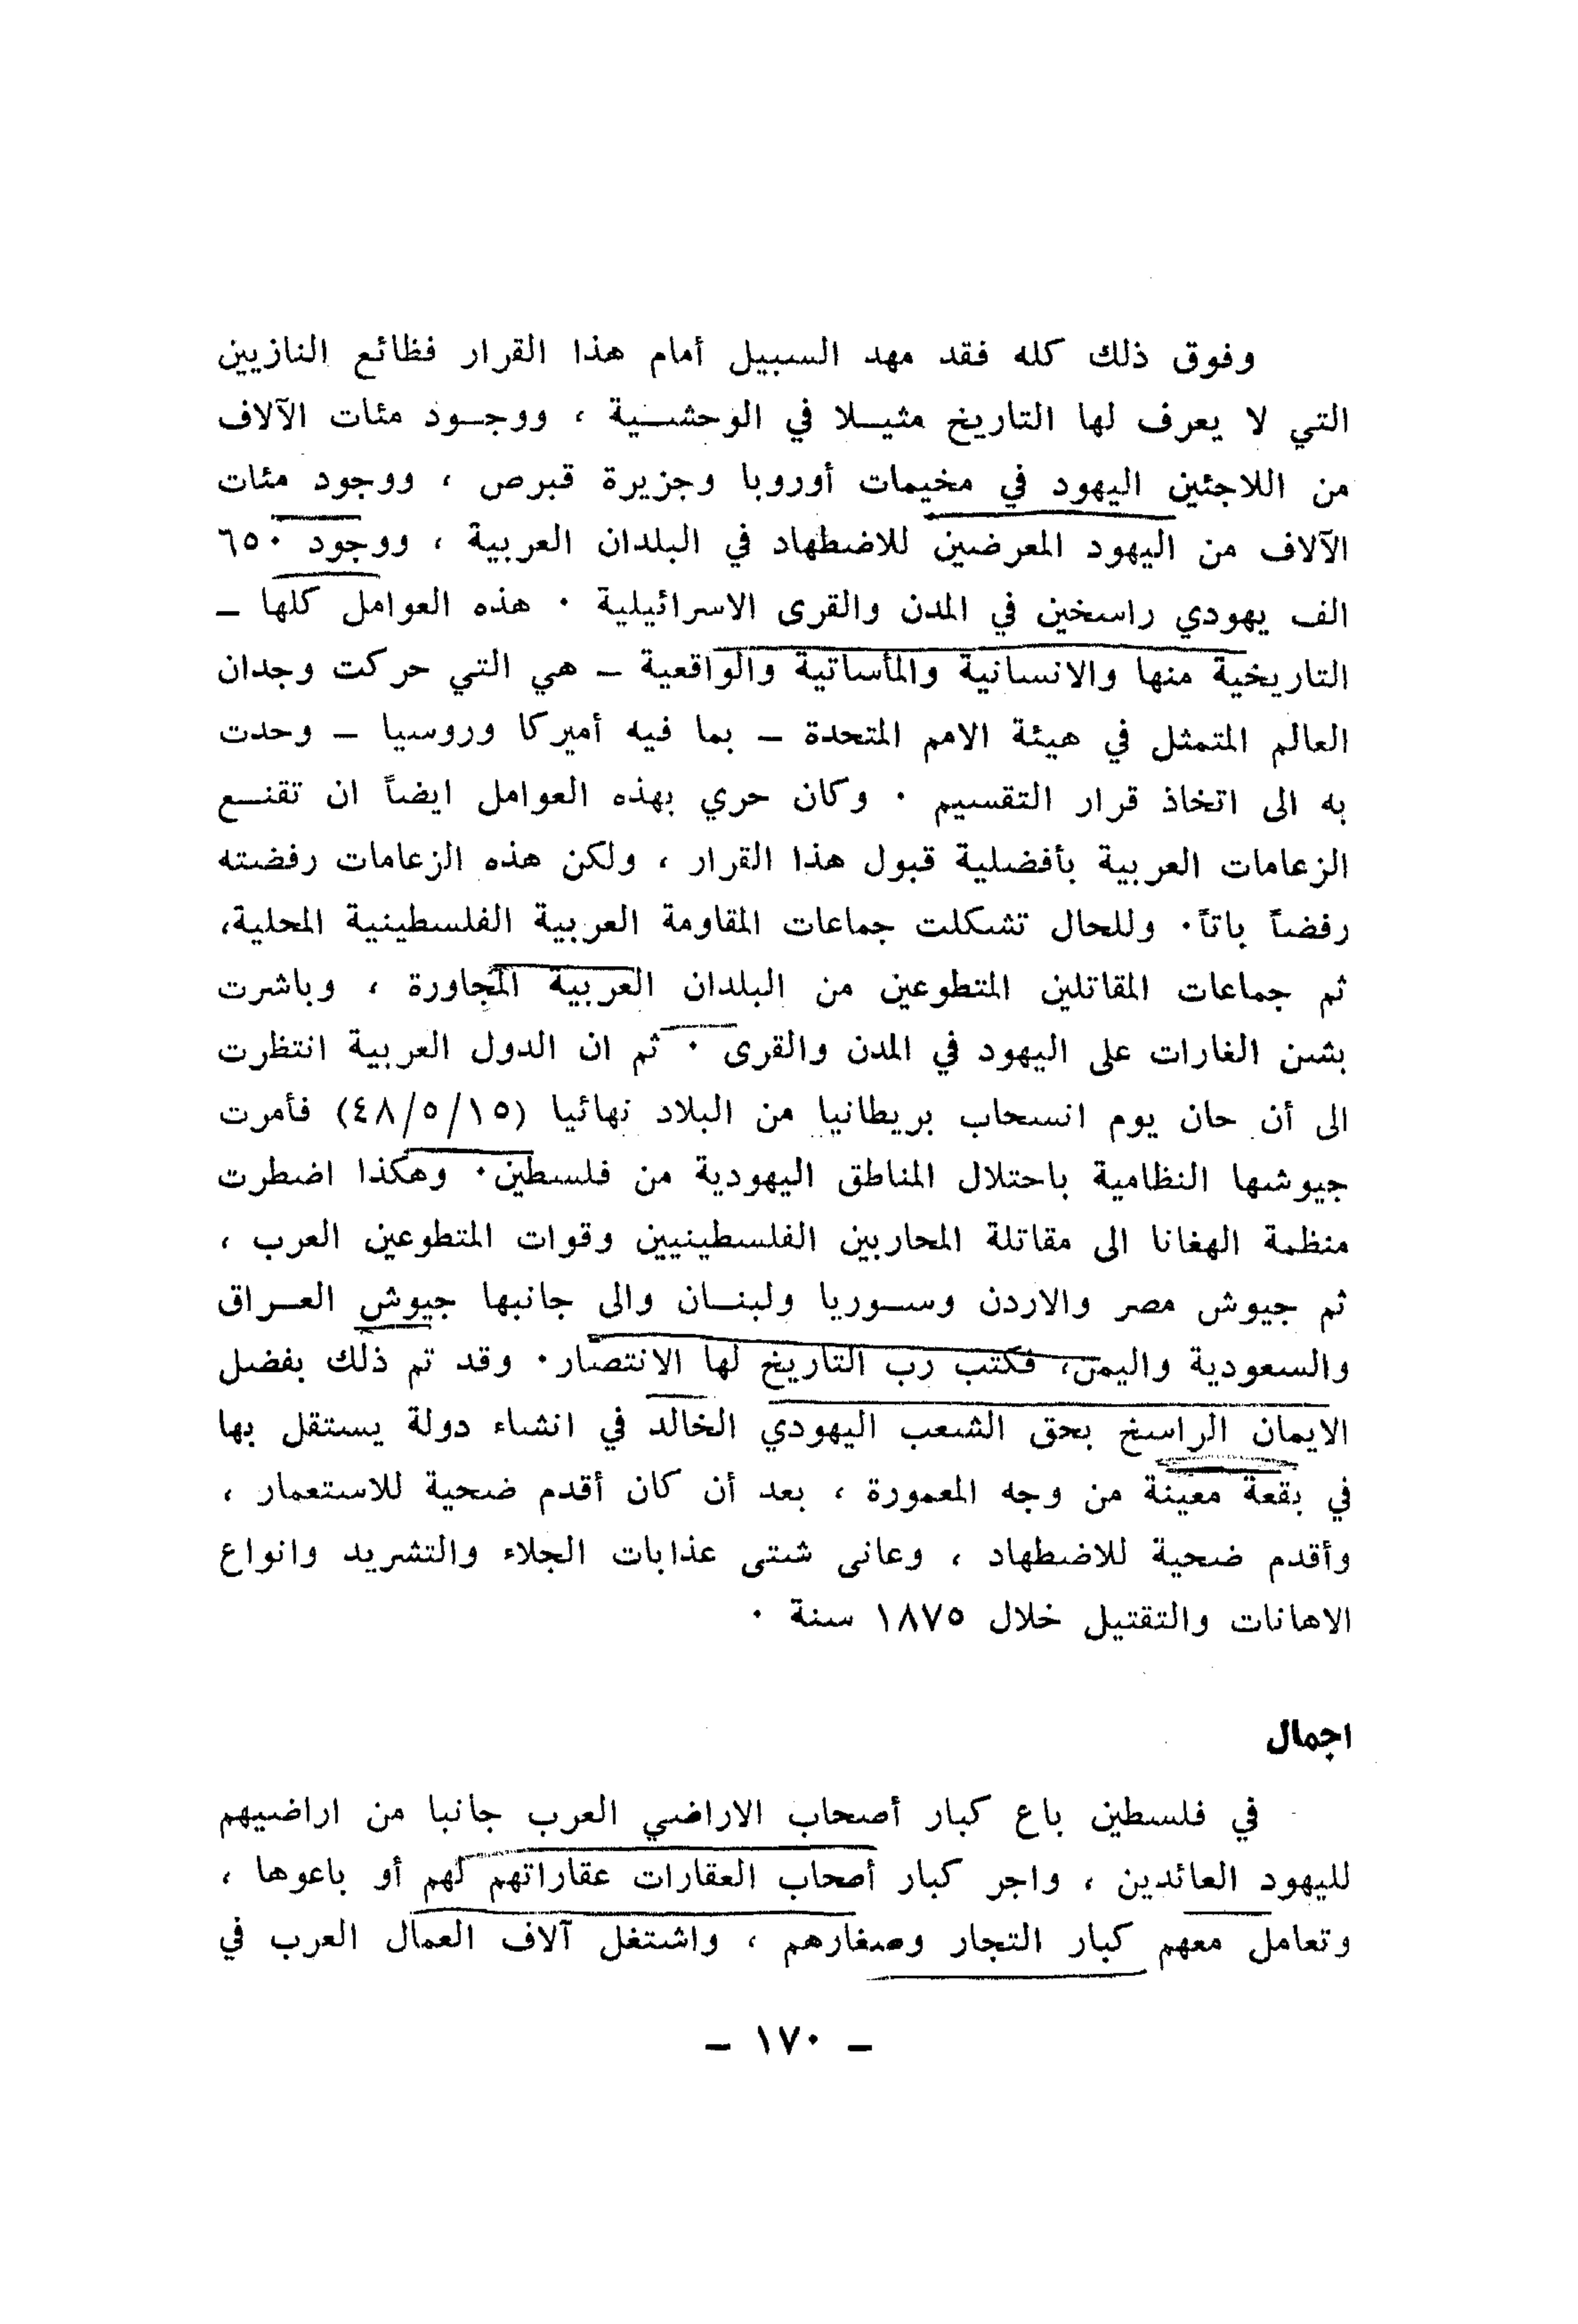 وفوق ذلك كله فقد مهد السبيل أمام هذا القرار فظائع النازيين
التي لا يعرف لها التاريخ مثيـلا في الوحشـية ، ووجـود مئات الآلاف
من اللاجئين اليهود في مخيمات أوروبا وجزيرة قبرص ، ووجود مئات
الآلاف من اليهود المعرضين للاضطهاد في البلدان العربية ، ووجود ٦٥٠
الف يهودي راسخين في المدن والقرى الاسرائيلية ٠ هذه العوامل كلها ـ
التاريخية منها والانسانية والمأساتية والواقعية ـ هي التي حركت وجدان
العالم المتمثل في هيئة الامم المتحدة ـ بما فيه أميركا وروسيا ـ وحدت
به الى اتخاذ قرار التقسيم ٠ وكان حري بهذه العوامل ايضاً ان تقنـع
الزعامات العربية بأفضلية قبول هذا القرار ، ولكن هذه الزعامات رفضته
رفضاً باتاً٠ وللحال تشكلت جماعات المقاومة العربية الفلسطينية المحلية،
ثم جماعات المقاتلين المتطوعين من البلدان العربية المجاورة ، وباشرت
بشن الغارات على اليهود في المدن والقرى ٠ ثم ان الدول العربية انتظرت
الى أن حان يوم انسحاب بريطانيا من البلاد نهائيا (٤٨/٥/١٥) فأمرت
جيوشها النظامية باحتلال المناطق اليهودية من فلسطين٠ وهكذا اضطرت
منظمة الهغانا الى مقاتلة المحاربين الفلسطينيين وقوات المتطوعين العرب ،
ثم جيوش مصر والاردن وسـوريا ولبنـان والى جانبها جيوش العـراق
والسعودية واليمن، فكتب رب التاريخ لها الانتصار٠ وقد تم ذلك بفضل
الايمان الراسخ بحق الشعب اليهودي الخالد في انشاء دولة يستقل بها
في بقعة معينة من وجه المعمورة ، بعد أن كان أقدم ضحية للاستعمار ،
وأقدم ضحية للاضطهاد ، وعانى شتى عذابات الجلاء والتشريد وانواع
الاهانات والتقتيل خلال ١٨٧٥ سنة ٠
اجمال
في فلسطين باع كبار أصحاب الاراضي العرب جانبا من اراضيهم
لليهود العائدين ، واجر كبار أصحاب العقارات عقاراتهم لهم أو باعوها ،
وتعامل معهم كبار التجار وصغارهم ، واشتغل آلاف العمال العرب في
ـ ١٧٠ ـ